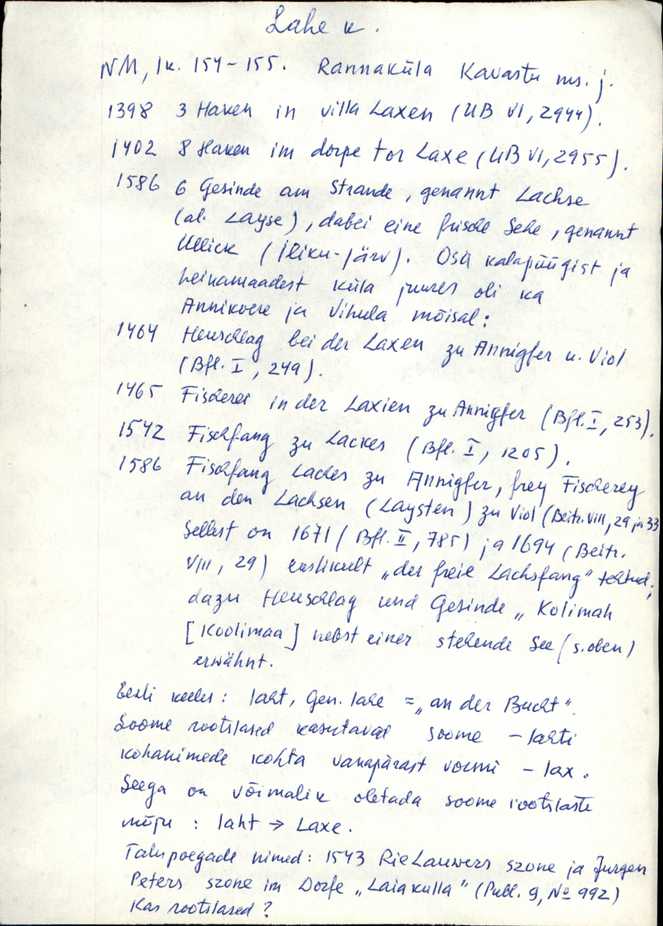 Lahe k.
NM, lk. 154-155. Rannaküla Kavastu ms. j.
1398 3 Haken in villa Laxen (UB VI, 2944).
1402 8 Haken im dorpe tor Laxe (UB VI, 2955).
1586 6 Gesinde am Strande, genannt Lachse
(al. Layse), dabei eine frische Sehe, genannt
Ullick (Iliku-järv). Osa kalapüügist ja
heinamaadest küla juures oli ka
Annikvere ja Vihula mõisal:
1464 Heuschlag bei der Laxen zu Annigfer u. Viol
(Bfl. I, 249).
1465 Fischerei in der Laxien zu Annigfer (Bfl. I, 253).
1542 Fischfang zu Lackes (Bfl. I, 1205).
1586 Fischfang Laches zu Annigfer, frey Fischerey
an den Lachsen (Laysten) zu Viol (Beitr. VIII, 29 ja 33
Sellest on 1671 (Bfl. II, 785) ja 1694 (Beitr.
VIII, 29) ekslikult „der freie Lachsfang" tehtud;
dazu Heuschlag und Gesinde „Kolimah
[Koolimaa] nebst einer stehende See (s. oben)
erwähnt.
Eesti keeles: laht, Gen. lahe = „an der Bucht".
Soome rootslased kasutavad soome -lahti
kohanimede kohta vanapärast vormi -lax.
Seega on võimalik oletada soome rootslaste
mõju: laht → Laxe.
Talupoegade nimed: 1543 Rie Lauwers szone ja Jurgen
Peters szone im Dorfe „Laiakulla" (Publ. 9, № 992)
Kas rootslased?